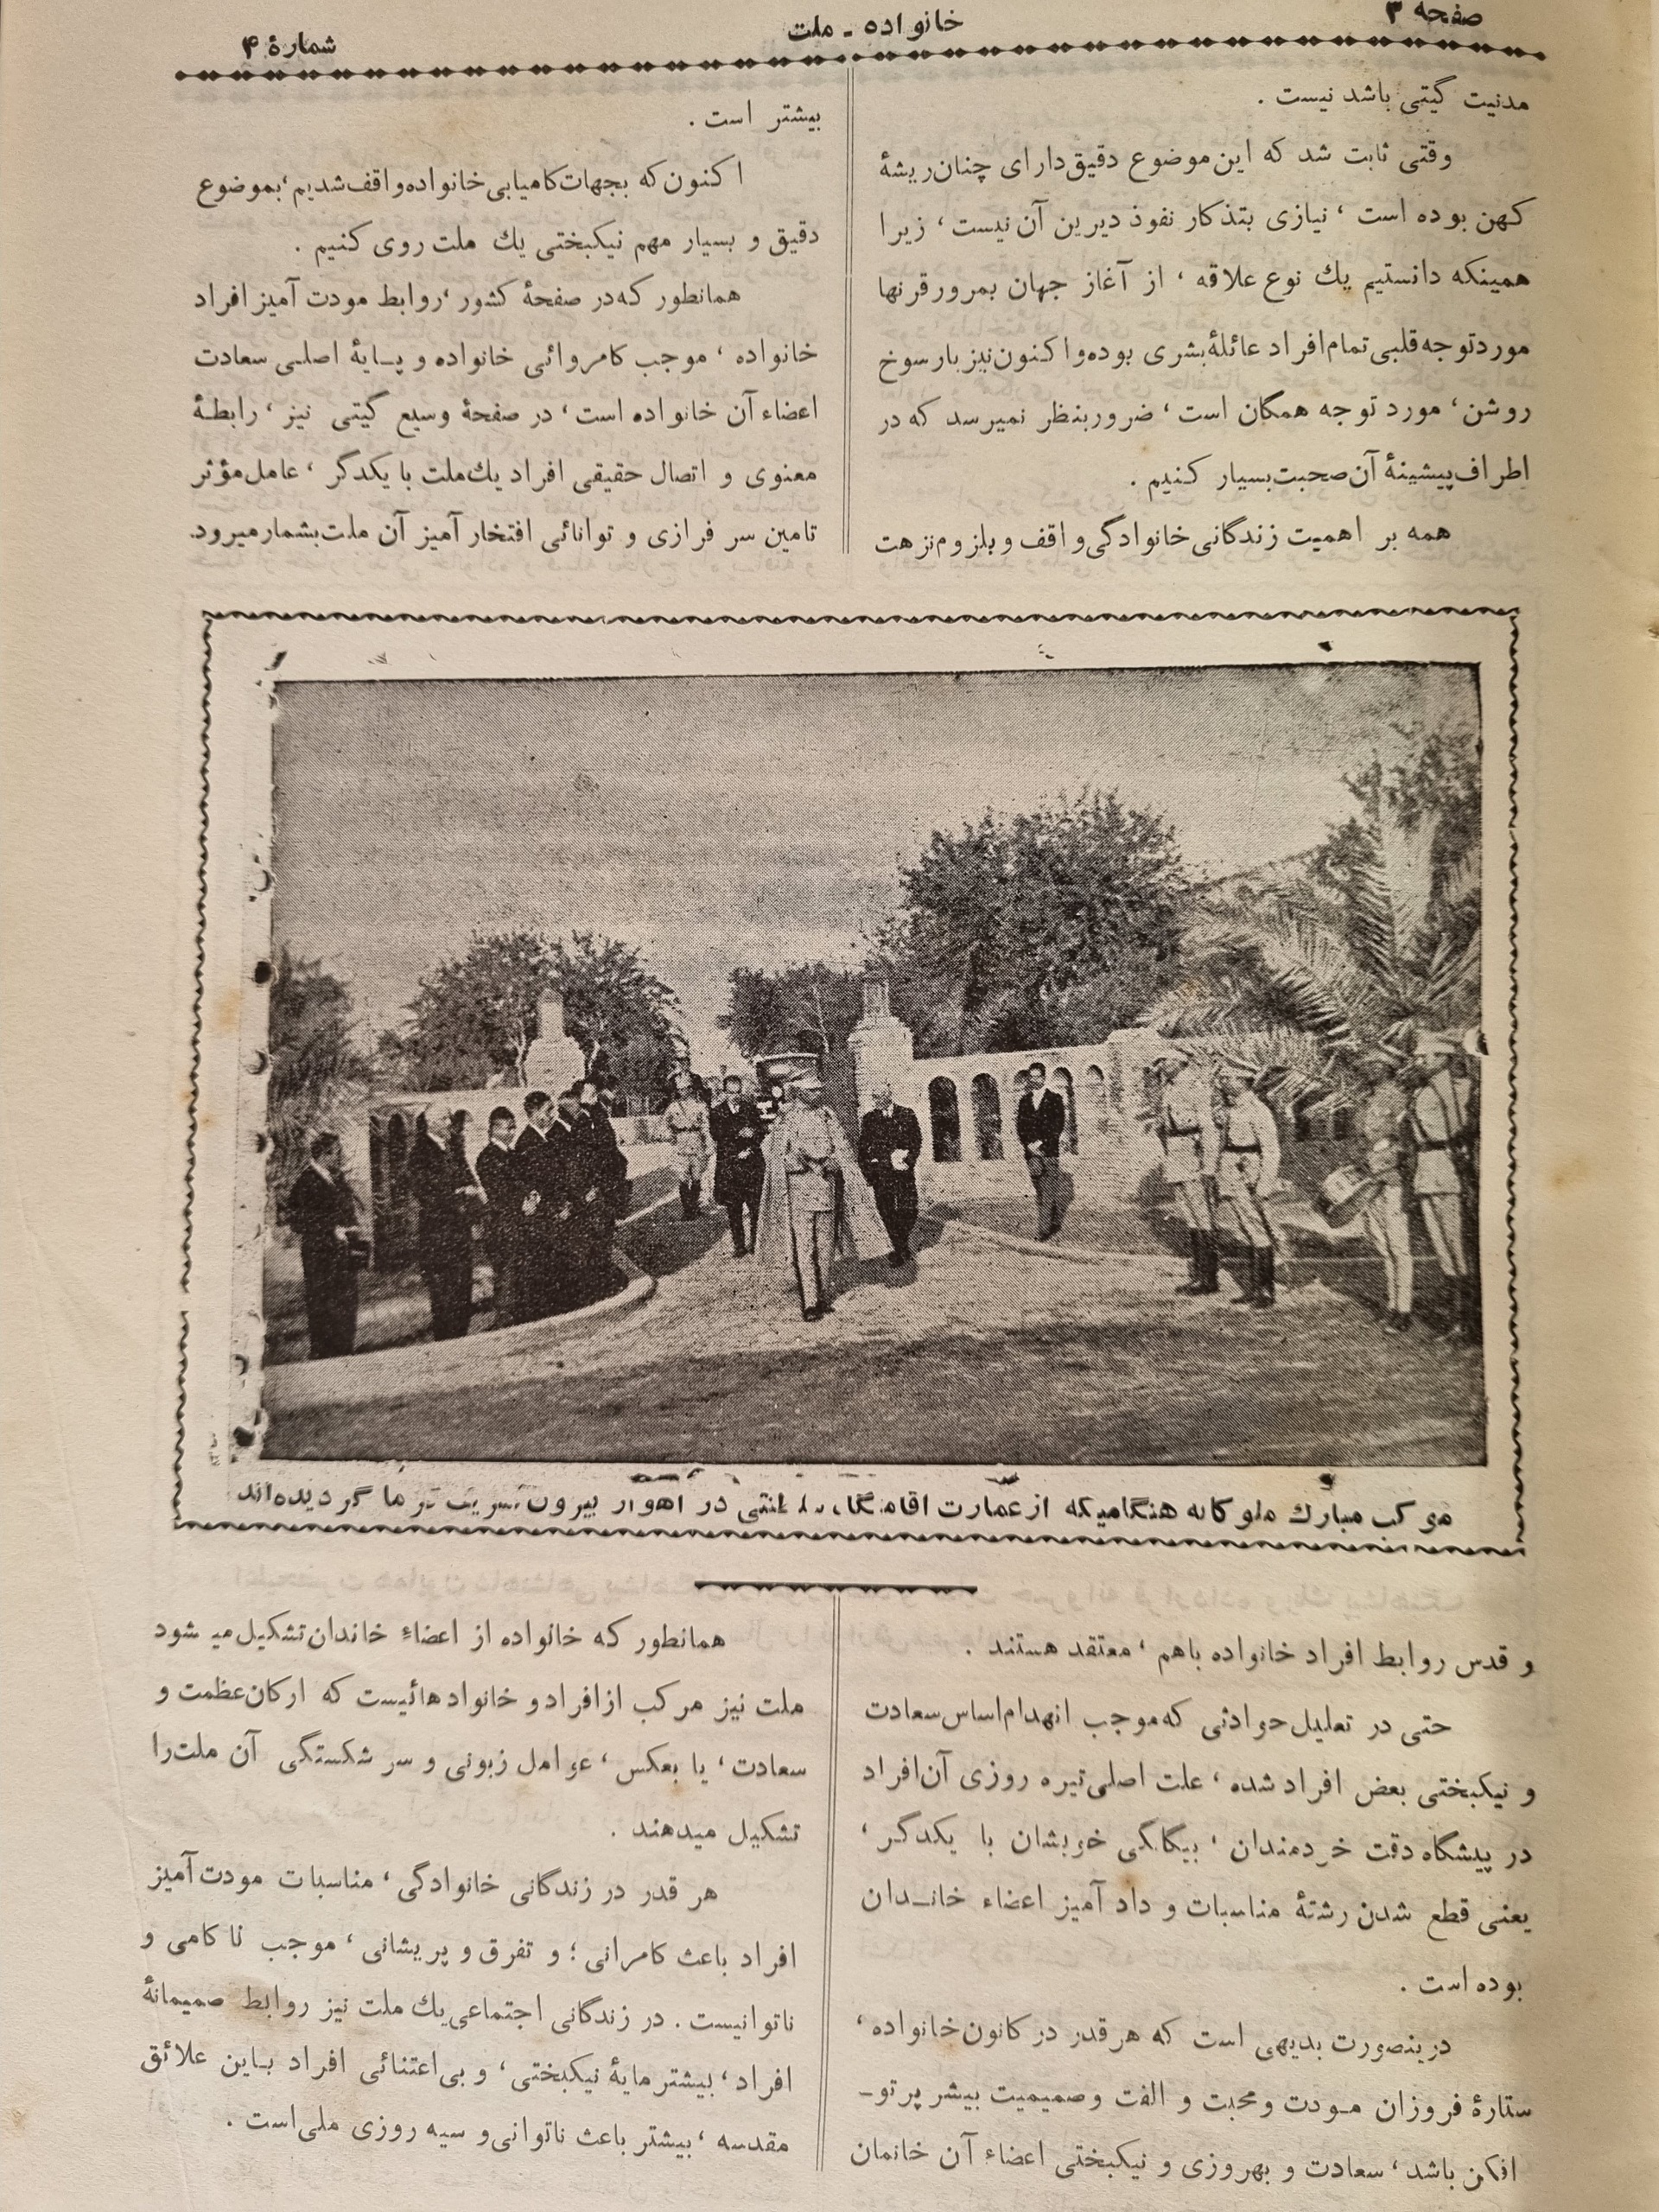 صفحه ۳
خانواده ـ ملت
شمارهٔ ۴
مدنیت گیتی باشد نیست .
وقتی ثابت شد که این موضوع دقیق دارای چنان ریشهٔ
کهن بوده است ، نیازی بتذکار نفوذ دیرین آن نیست ، زیرا
همینکه دانستیم یك نوع علاقه ، از آغاز جهان بمرور قرنها
مورد توجه قلبی تمام افراد عائلهٔ بشری بوده و اکنون نیز بارسوخ
روشن ، مورد توجه همگان است ، ضرور بنظر نمیرسد که در
اطراف پیشینهٔ آن صحبت بسیار کنیم .
همه بر اهمیت زندگانی خانوادگی واقف و بلزوم نزهت
بیشتر است .
اکنون که بجهات کامیابی خانواده واقف شدیم ، بموضوع
دقیق و بسیار مهم نیکبختی یك ملت روی کنیم .
همانطور که در صفحهٔ کشور ، روابط مودت آمیز افراد
خانواده ، موجب کامروائی خانواده و پـایهٔ اصلـی سعادت
اعضاء آن خانواده است ، در صفحهٔ وسیع گیتی نیز ، رابطـهٔ
معنوی و اتصال حقیقی افراد یك ملت با یکدگر ، عامل مؤثر
تامین سر فرازی و توانائی افتخار آمیز آن ملت بشمار میرود.
موکب مبارك ملوکانه هنگامیکه از عمارت اقامتگاه سلطنتی در اهواز بیرون تشریف فرما گردیده‌اند
و قدس روابط افراد خانواده باهم ، معتقد هستند .
حتی در تعلیل حوادثی که موجب انهدام اساس سعادت
و نیکبختی بعض افراد شده ، علت اصلی تیره روزی آن افراد
در پیشگاه دقت خردمندان ، بیگانگی خویشان با یکدگر ،
یعنی قطع شدن رشتهٔ مناسبات و داد آمیز اعضاء خانـدان
بوده است .
درینصورت بدیهی است که هر قدر در کانون خانواده ،
ستارهٔ فروزان مـودت و محبت و الفت و صمیمیت بیشر پرتوـ
افکن باشد ، سعادت و بهروزی و نیکبختی اعضاء آن خانمان
همانطور که خانواده از اعضاء خاندان تشکیل میشود
ملت نیز مرکب از افراد و خانوادهائیست که ارکان عظمت و
سعادت ، یا بعکس ، عوامل زبونی و سر شکستگی آن ملت را
تشکیل میدهند .
هر قدر در زندگانی خانوادگی ، مناسبات مودت آمیز
افراد باعث کامرانی ؛ و تفرق و پریشانی ، موجب ناکامی و
ناتوانیست . در زندگانی اجتماعی یك ملت نیز روابط صمیمانهٔ
افراد ، بیشتر مایهٔ نیکبختی ، و بی اعتنائی افراد بـاین علائق
مقدسه ، بیشتر باعث ناتوانی و سیه روزی ملی است .